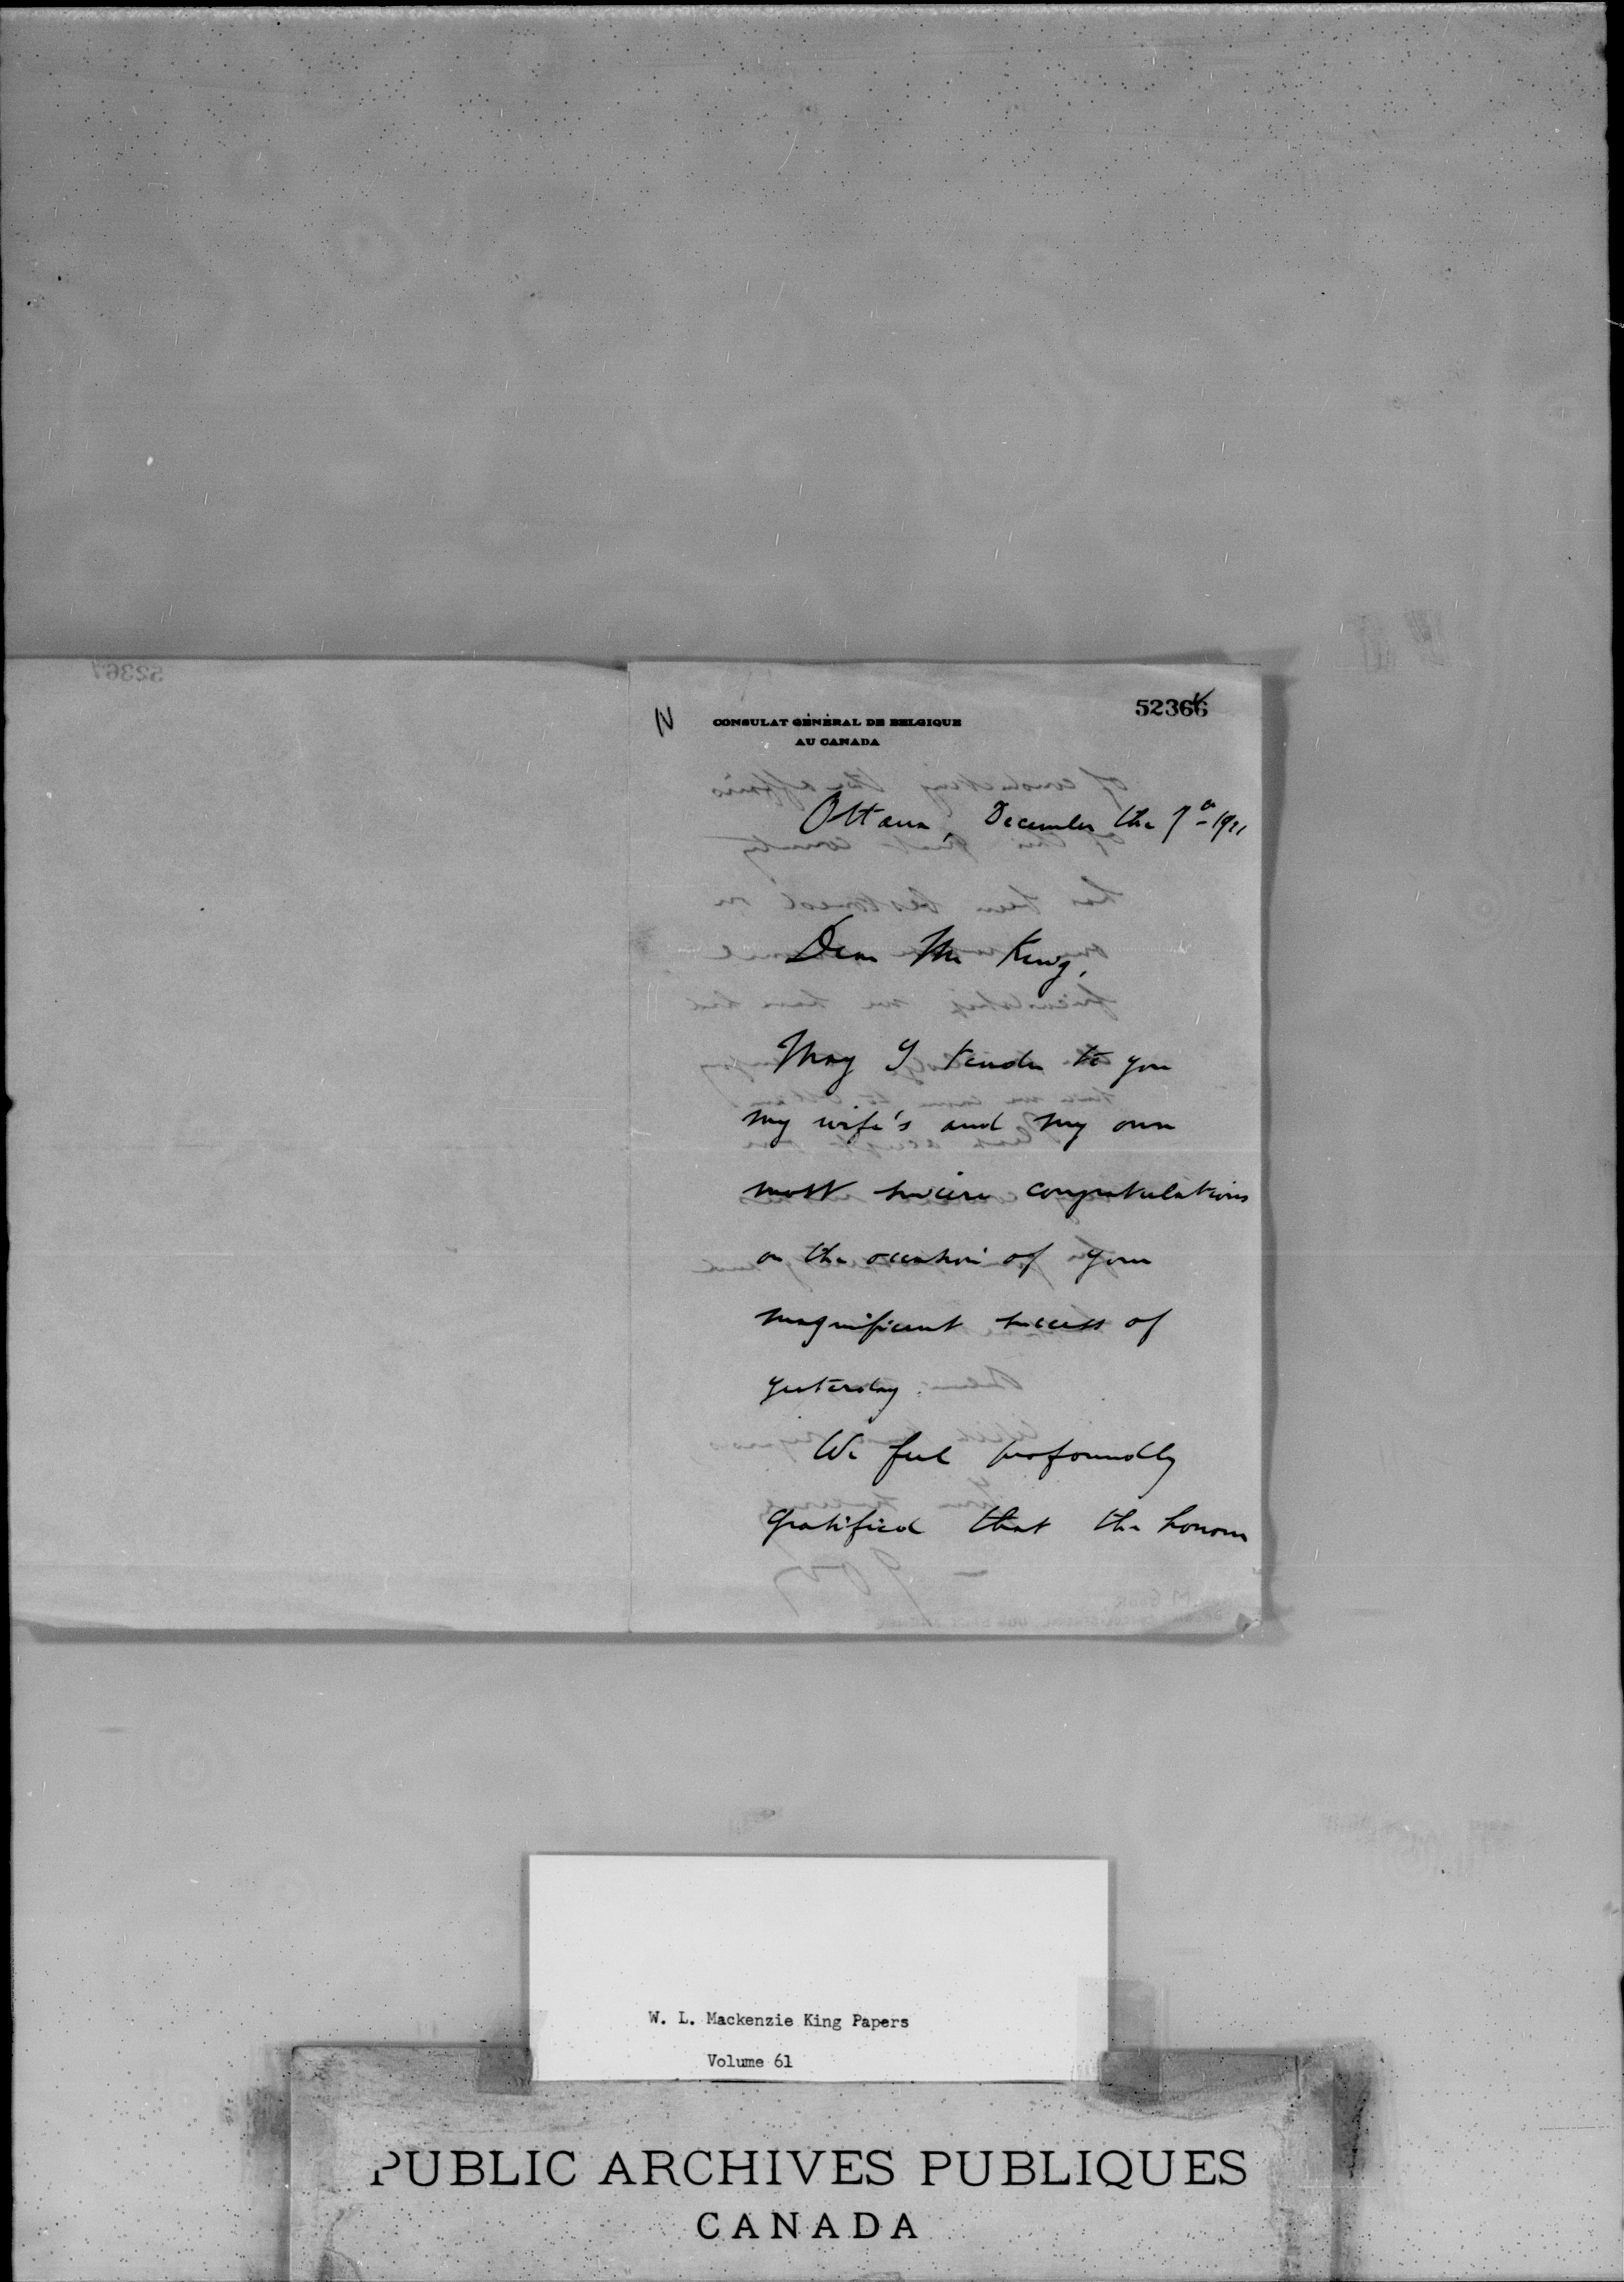 52367
N
CONSULAT GÉNÉRAL DE BELGIQUE
AU CANADA
52366
Ottawa, December the 7th 1921
Dear Mr King,
May I tender to you
my wife's and my own
most sincere congratulations
on the occasion of your
magnificent success of
yesterday.
We feel profoundly
gratified that the honour
W. L. Mackenzie King Papers
Volume 61
PUBLIC ARCHIVES PUBLIQUES
CANADA